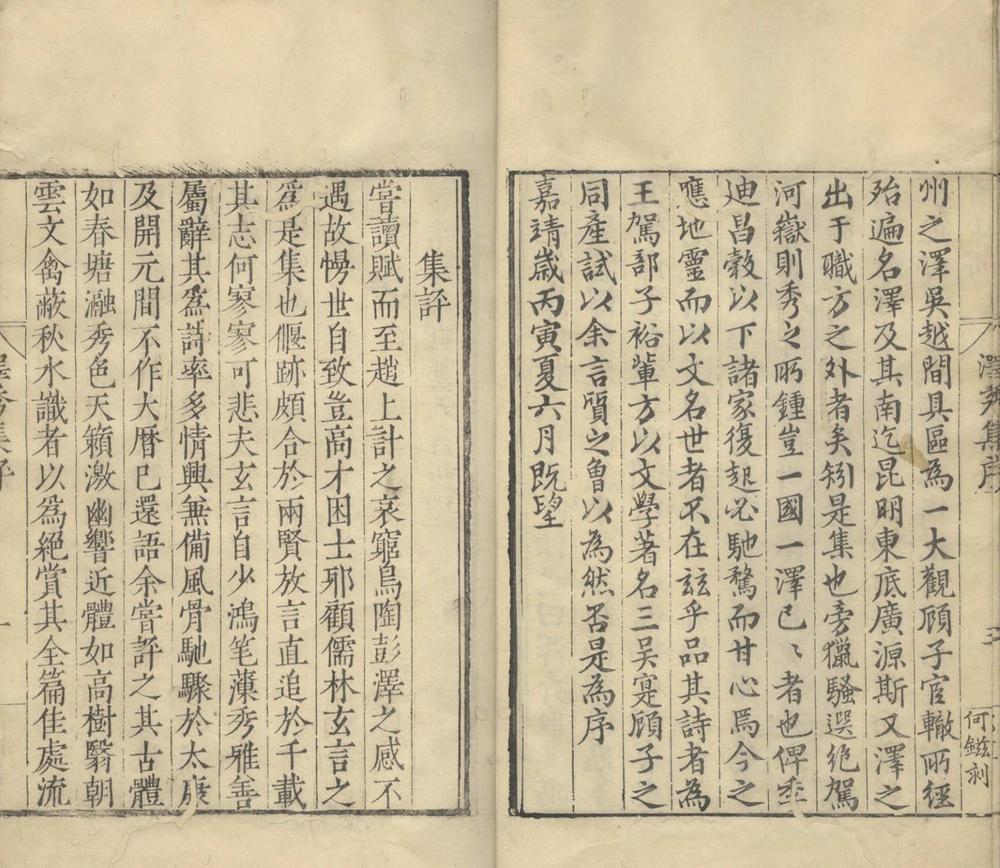 澤秀集序
五
何鎡刻
州之澤吳越間具區為一大觀顧子官轍所經
殆遍名澤及其南迄昆明東底廣源斯又澤之
出于職方之外者矣矧是集也旁獵騷選絶駕
河嶽則秀之所鍾豈一國一澤已〻者也俾垂
迪昌穀以下諸家復起必馳騖而甘心焉今之
應地靈而以文名世者不在茲乎品其詩者為
王駕部子裕輩方以文學著名三吳寔顧子之
同產試以余言質之魯以為然否是為序
嘉靖歲丙寅夏六月既望
集評
嘗讀賦而至趙上計之哀窮鳥陶彭澤之感不
遇故愓世自致豈高才困士邪顧儒林玄言之
爲是集也偃跡頗合於兩賢放言直追於千載
其志何寥寥可悲夫玄言自少鴻笔藻秀雅善
屬辭其爲詩率多情興兼備風骨馳驟於太康
及開元間不作大曆已還語余嘗評之其古體
如春塘瀜秀色天籟激幽響近體如高樹翳朝
雲文禽蔽秋水識者以爲絕賞其全篇佳處流
澤秀集序
一